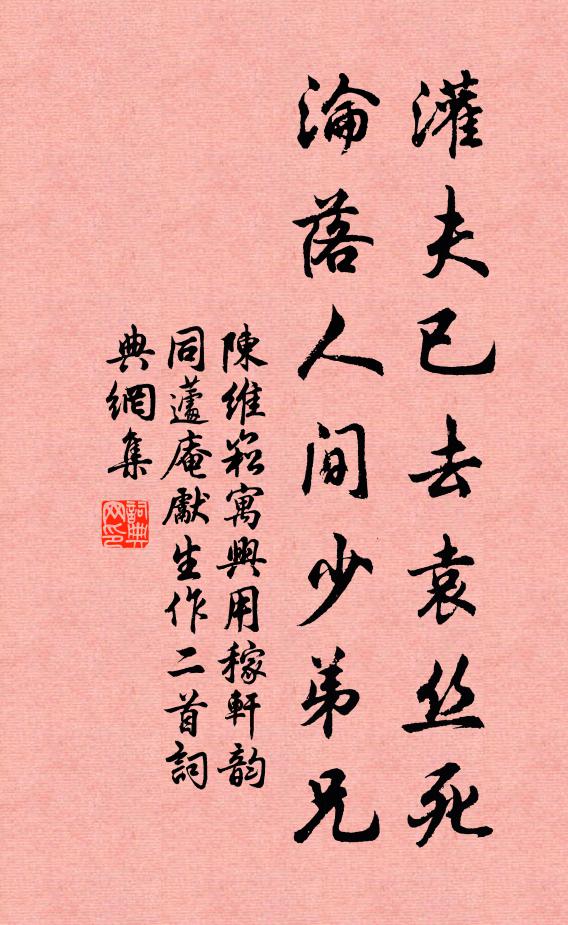 灌夫已去袁丝死
淪落人间少弟兄
陳維崧寓興用稼軒韵
同蘧庵獻生作二首詞
典網集
詞典
网印